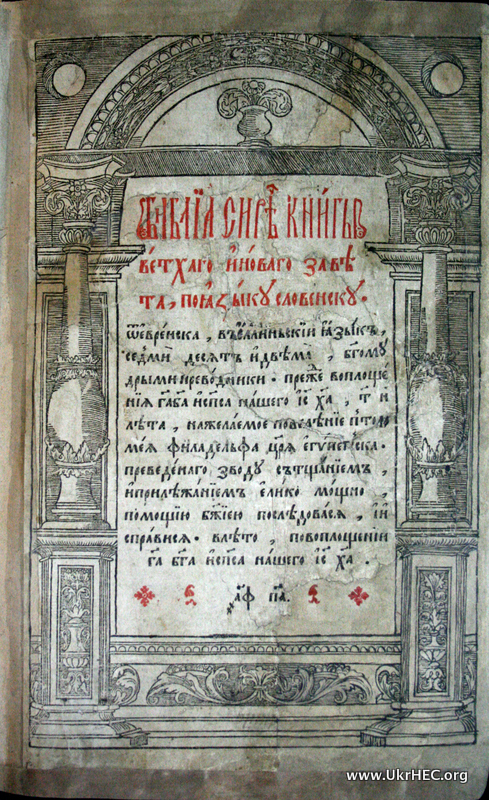 БИБЛІА СИРѢЧЬ КНИ́ГЫ
ВЕТХАГО И҆НО́ВАГО ЗАВѢ
ТА, ПОꙖ҆ЗЫКУ СЛОВЕНСКУ.
Ѿе҆врейска, въе҆ллиньскїй ꙗ҆зыкъ,
седмї десѧтъ и҆двѣма̀, бг҃ому
дрыми преводники. пре́жⷣе воплоще
нїѧ гⷭ҇а бг҃а и҆сп҃са на́шего і҆с҃ х҃а, т҃ а҃
лѣта, нажелаемое повелѣнїе птоло
меѧ филаделъфа цр҃ѧ е҆гѵпетска.
преведе́наго, зводу сътща́нїемъ,
и҆прилѣжа́нїемъ е҆лико мо́щно,
помощїю бж҃їею послѣдовасѧ, и҆
справисѧ. влѣто, повоплоще́нїи
гⷭ҇а бг҃а и҆сп҃са на́шего і҆с҃ х҃а.
҂а҃ф п҃а.
www.UkrHEC.org